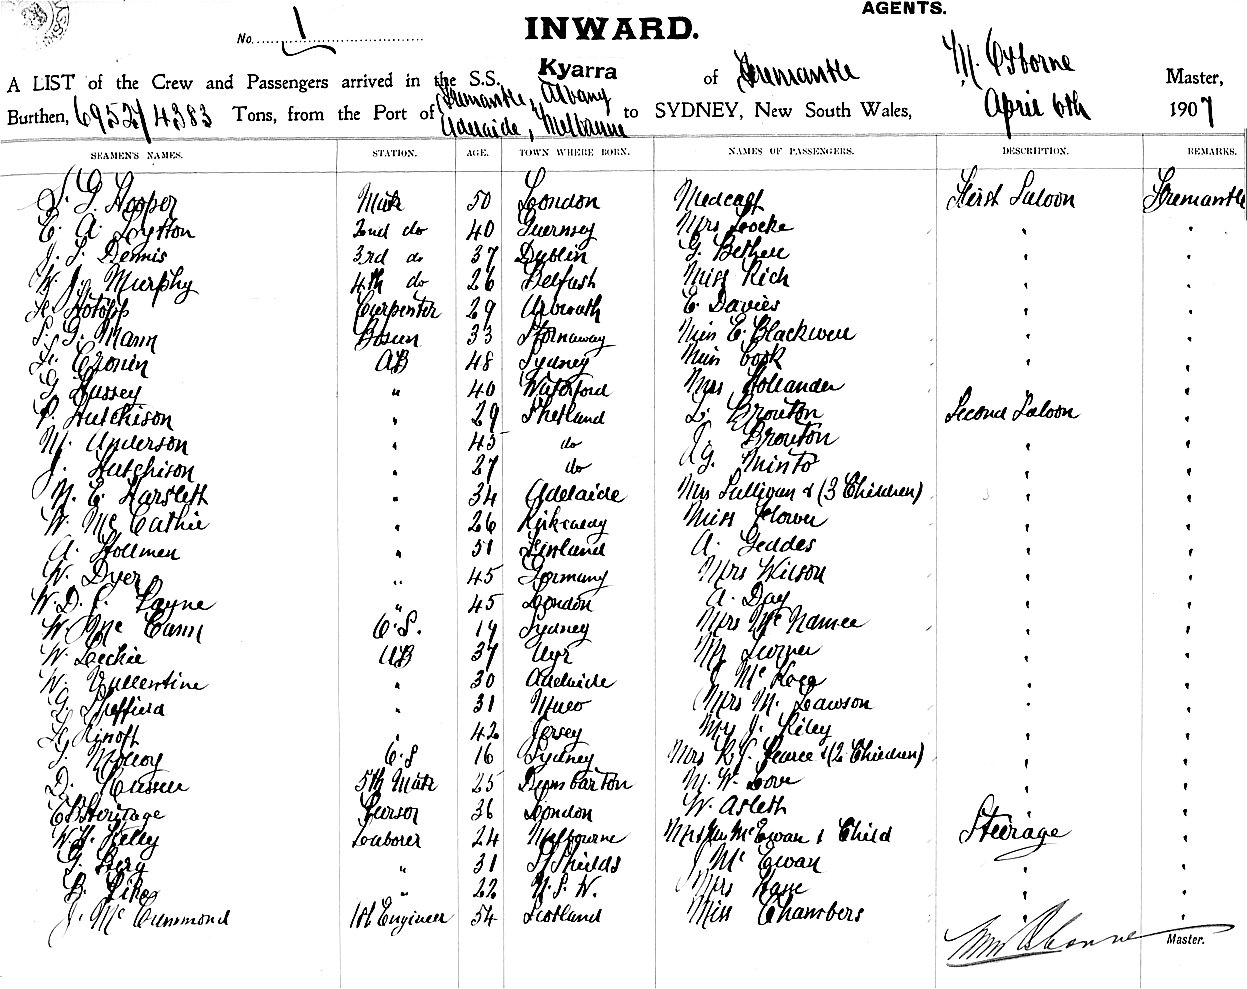 AGENTS.
No. 1
INWARD.
A LIST of the Crew and Passengers arrived in the S.S. Kyarra of Fremantle M. Osborne Master,
Burthen, 6952/4383 Tons, from the Port of Fremantle, Albany Adelaide, Melbourne to SYDNEY, New South Wales, April 6th 1907
SEAMEN'S NAMES. STATION. AGE. TOWN WHERE BORN. NAMES OF PASSENGERS. DESCRIPTION. REMARKS.
Hooper Mate 50 London Medcalf First Saloon Fremantle
E. A. Lytton 2nd do 40 Guernsey Mrs Locke " "
J. S. Dennis 3rd do 37 Dublin G. Bethell " "
W. J. Murphy 4th do 26 Belfast Miss Rich " "
Carpenter 29 Arbroath E Davies " "
S. G. Mann Bosun 33 Stornaway Miss E. Blackwell " "
Cronin AB 48 Sydney Miss Cook " "
G Hussey " 40 Waterford Mrs Hollander " "
P. Hutchison " 29 Shetland Brouton Second Saloon "
M. Anderson " 45 do Brouton " "
J. Hutchison " 27 do G. Minto " "
N. E. Harslett " 34 Adelaide Mrs Sullivan & (3 Children) " "
W. McCathie " 26 Kirkcaldy Miss Flower " "
A. Hollmen " 51 Finland A. Geddes " "
W. Dyer " 45 Germany Mrs Wilson " "
W. D. J. Payne " 45 London A. Day " "
W. McCann O.S. 19 Sydney Mrs McNamee " "
W Leckie AB 37 Ayr Mr Turner " "
W. Vallentine " 30 Adelaide " "
G Sheffield " 31 Mrs M. Lawson " "
" 42 Jersey J. Riley " "
McIlroy O.S 16 Sydney Mrs R. J. Pearce & (2 Children) " "
D. Russell 5th Mate 25 Dumbarton M. W. Love " "
E B Heritage Purser 36 London W. Asleth " "
W. H. Kelly Laborer 24 Melbourne McEwan & Child Steerage "
G. Berg " 31 S. Shields J McEwan " "
B. Pike " 22 N. S. W. Mrs Kaye " "
J. McCummond 1st Engineer 54 Scotland Miss Chambers " "
Wm Osborne Master.